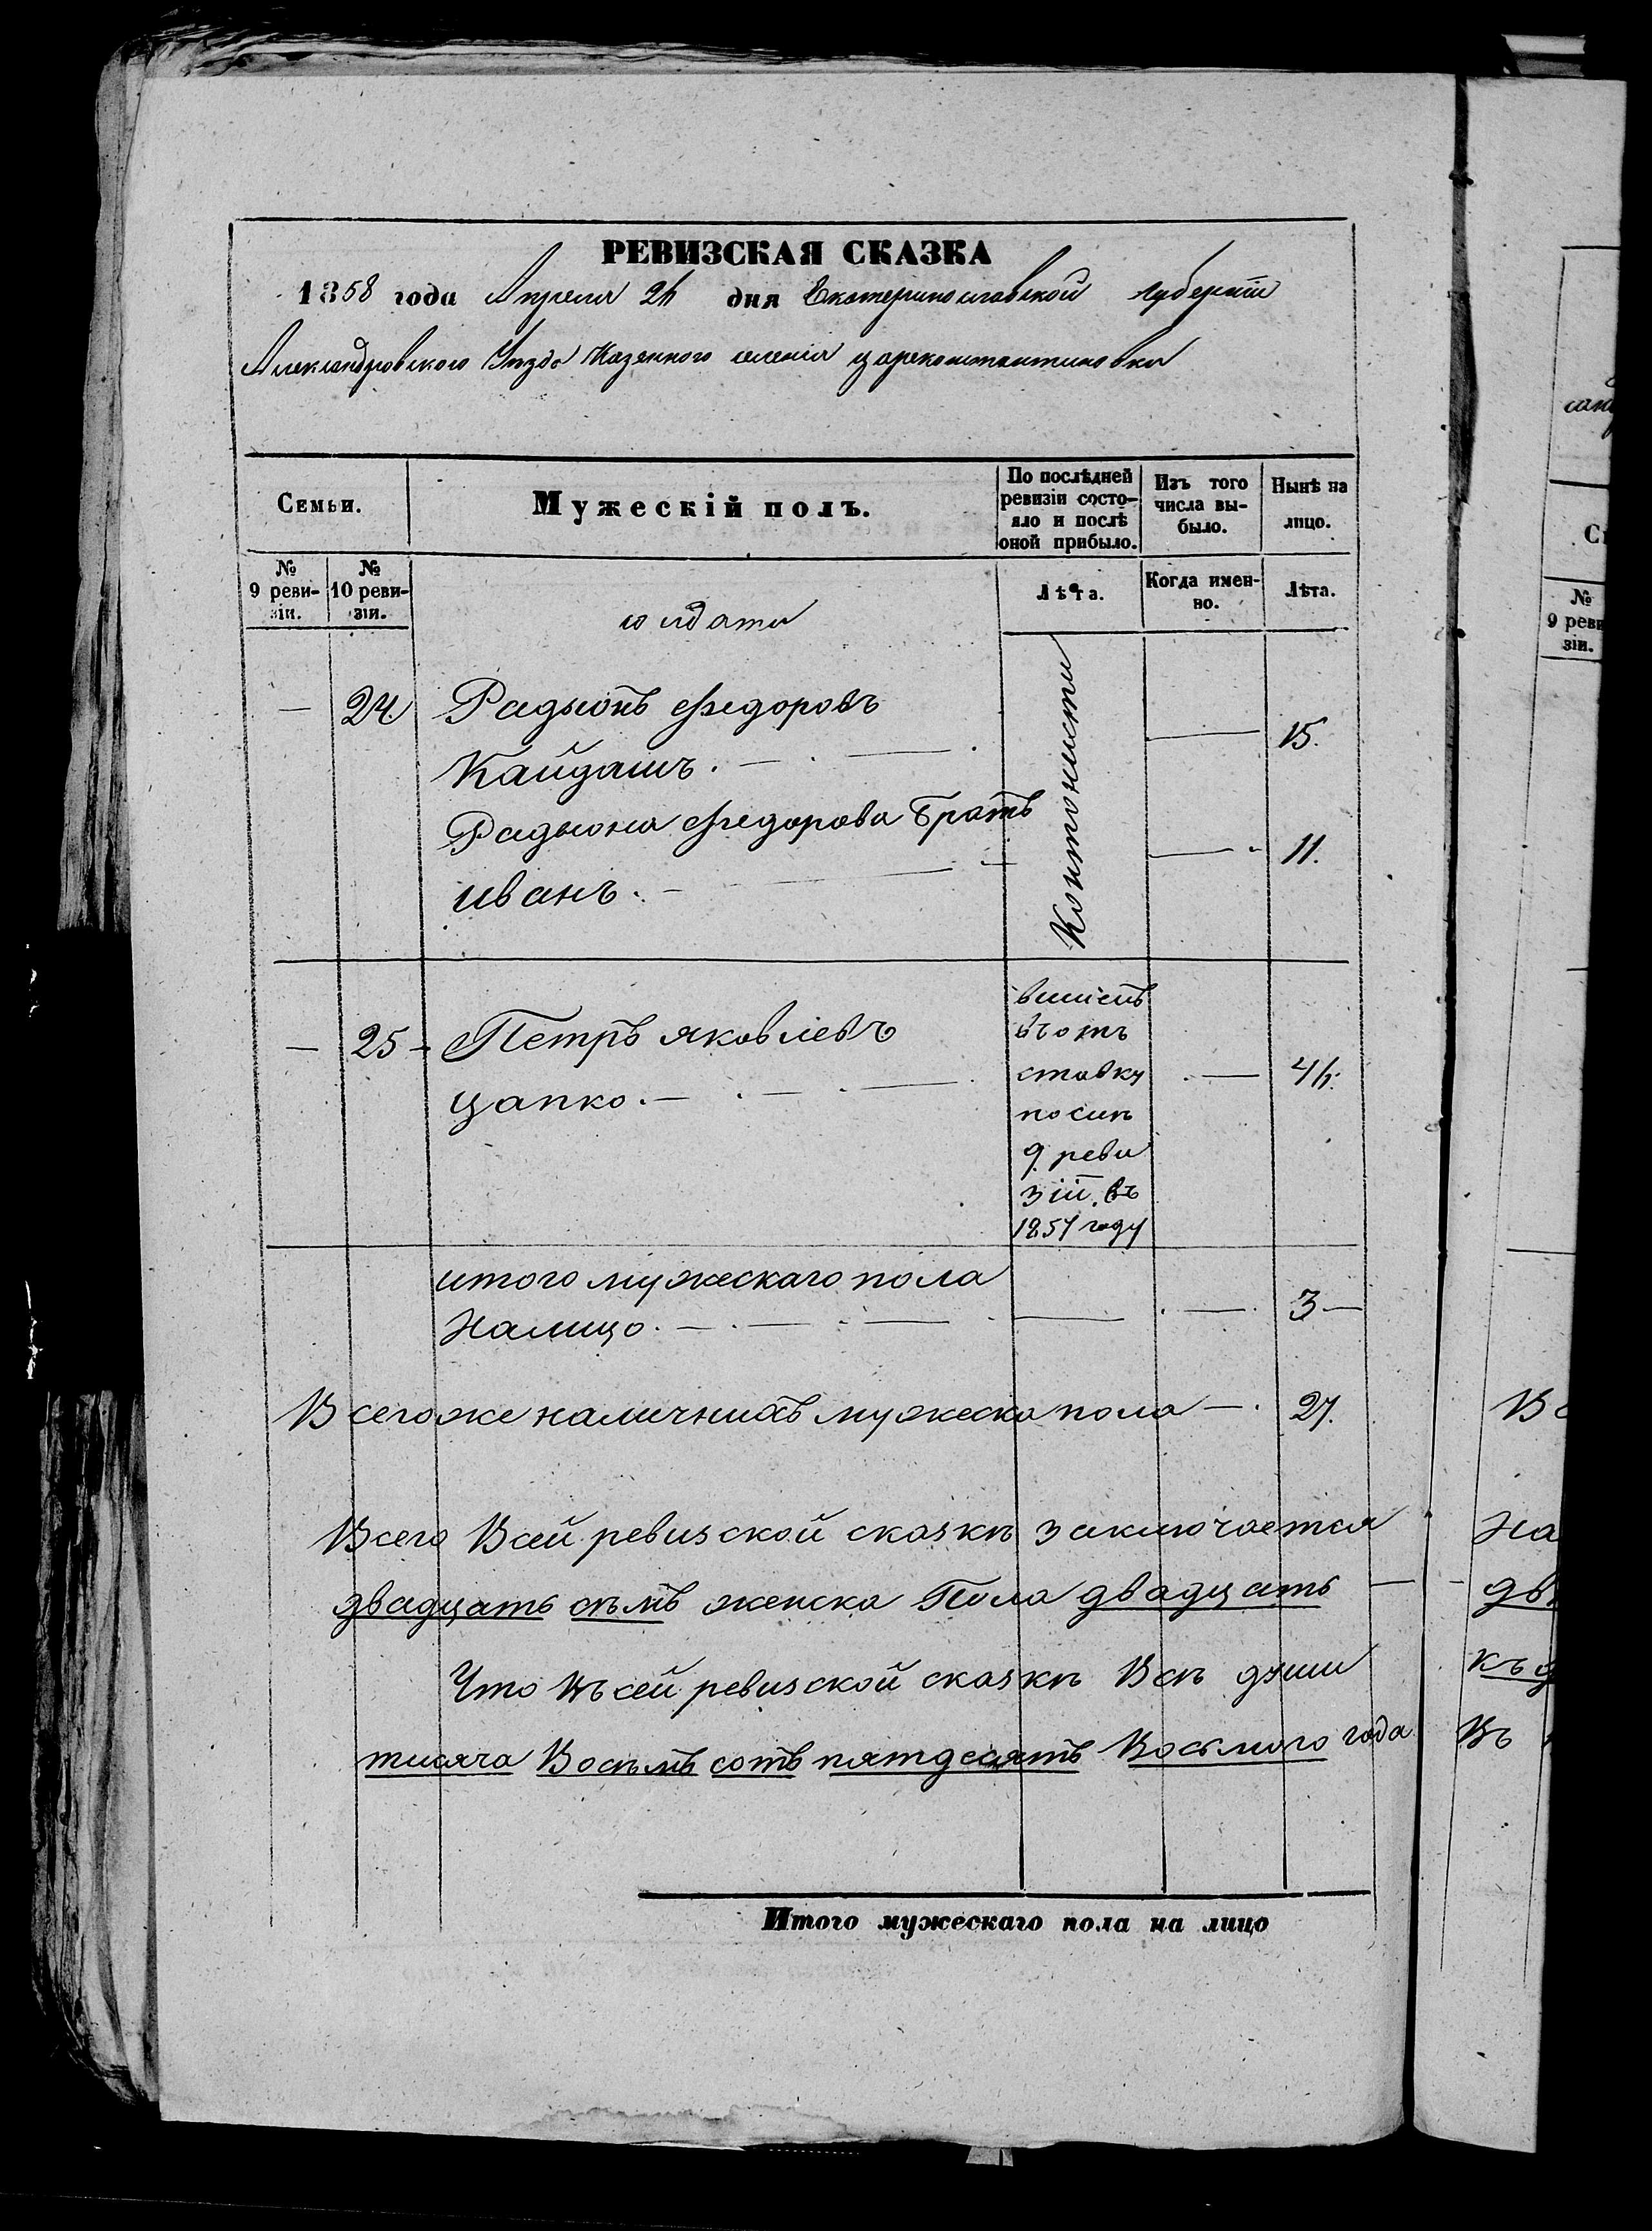 РЕВИЗСКАЯ СКАЗКА
1858 года Апреля 24 дня Екатеринославской Губернии
Александровского Уезда Казенного селения Цареконстантиновки
Семьи.
Мужескій полъ.
По послѣдней ревизіи состо-
яло и послѣ
оной прибыло.
Изъ того
числа вы-
было.
Нынѣ на
лицо.
№
9 реви-
зіи.
№
10 реви-
зіи.
солдати
Лѣта.
Когда имен-
но.
Лѣта.
— 24 Радыонъ Федоровъ
Кайдашъ. — 15.
Радыона Федорова братъ
иванъ. — 11.
Контонисти
— 25 Петръ яковлевъ
цапко. —
вшість
вчотъ
ставку
посин
9 реви
зій. въ
1857 году
итого мужескаго пола
Налицо. — 3 —
Всегоже наличнихъ мужеска пола — 27.
Всего Всей ревизской сказкѣ заключается
двадцать сѣмъ женска Пола двадцать
Что въ сей ревизской сказкѣ Всѣ души
тисяча Восѣмъ сотъ пятдесятъ Восьмого года
Итого мужескаго пола на лицо
№
9 реви
зіи.
На
дв
къ
Въ